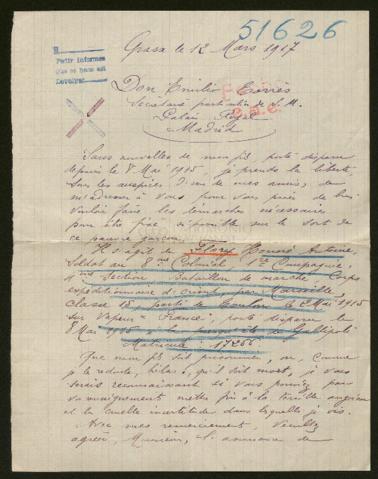 51626
Grasse le 12 Mars 1917
Pedir informes
que se haga est
Devolver
Don Emilio Torrès
Secrétaire particulier de S. M.
Palais Royal
Madrid
Sans nouvelles de mon fils, porté disparu
depuis le 8 Mai 1915, je prends la liberté,
sous les auspices d'un de mes amis, de
m'adresser à vous pour vous prier de bien
vouloir faire les démarches nécessaires
pour être fixé, si possible, sur le sort de
ce pauvre garçon.
Il s'agit de Honoré Antoine,
Soldat au 8me Colonial, 1re Compagnie
4me Section Bataillon de marche Corps
expéditionnaire d'Orient, par Marseille
Classe 15, parti de Toulon le 2 Mai 1915
sur Vapeur "France", porté disparu le
8 Mai 1915 à la de Gallipoli
Matricule
Que mon fils soit prisonnier, ou, comme
je le redoute, hélas, qu'il soit mort, je vous
serais reconnaissant si vous pouviez par
vos renseignements mettre fin à la terrible angoisse
et la cruelle incertitude dans laquelle je vis.
Avec mes remerciements, Veuillez
agréer, Monsieur, l'assurance de